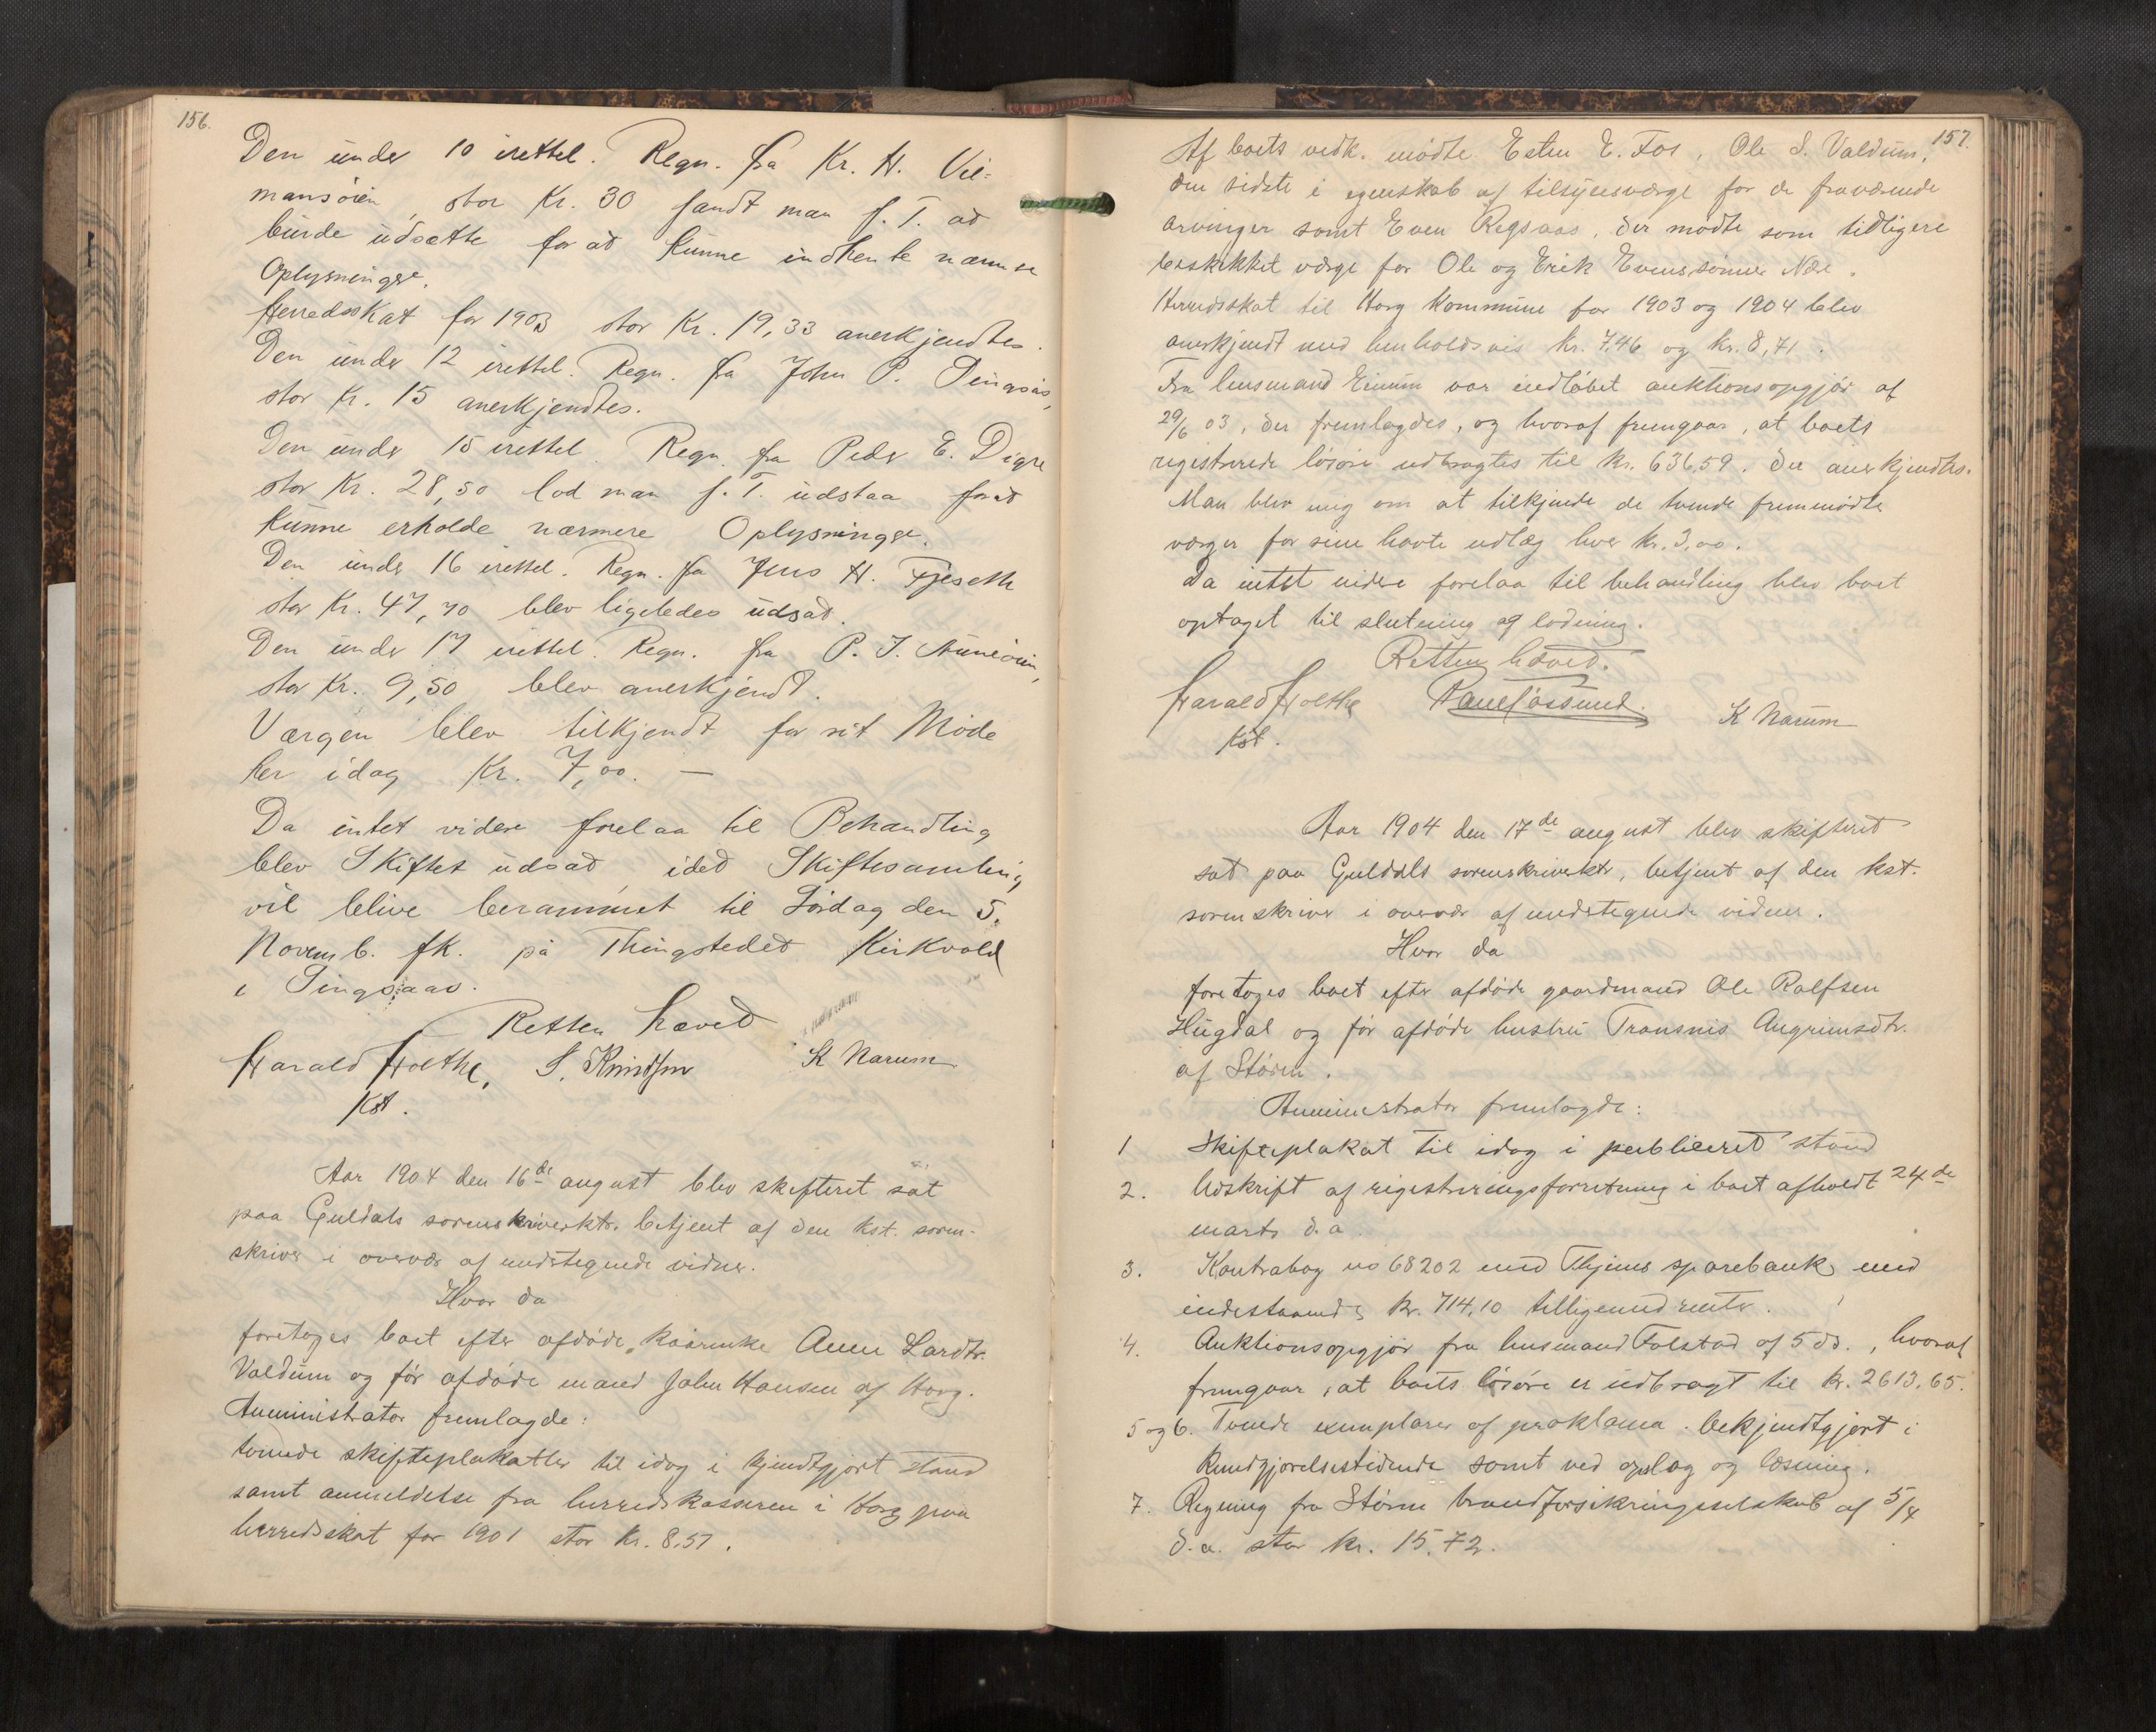 156.
Den under 10 irettel. Regn. fra Kr. H. Vil-
mansöien, stor Kr. 30 fandt man f. T. at
burde udsætte for at kunne indhente nærmere
Oplysninger.
Herredsskat for 1903 stor Kr. 19,33 anerkjendtes.
Den under 12 irettel. Regn. fra John P. Singsås,
stor Kr. 15 anerkjendtes.
Den under 15 irettel. Regn. fra Peder E. Digre
stor Kr. 28,50 lod man f. T. udstaa forat
kunne erholde nærmere Oplysninger.
Den under 16 irettel. Regn. fra Jens H. Fjeseth
stor Kr. 47,70 blev ligeledes udsat.
Den under 17 irettel. Regn. fra P. J.
stor Kr. 9,50 blev anerkjendt.
Værgen blev tilkjendt for sit Möde
her idag Kr. 7,00. —
Da intet videre forelaa til Behandling
blev Skiftet udsat, idet Skiftesamling
vil blive berammet til Lördag den 5.
Novemb. fk. på Thingstedet Kirkvold
i Singsaas.
Retten hævet
Harald Holthe, S. Knudsen K Narum
Kst.
Aar 1904 den 16de august blev skifteret sat
paa Guldals sorenskriverktr. betjent af den kst. soren-
skriver i overvær af undertegnede vidner.
Hvor da
foretoges boet efter afdöde kaarenke Anne Larsdtr.
Valdum og för afdöde mand John Hansen af Horg.
Administrator fremlagde:
tvende skifteplakatter til idag i kjendtgjort stand
samt anmeldelse fra herredskassereren i Horg paa
herredsskat for 1901 stor kr. 8.57.
157.
Af boets vedk. mödte Esten E. Fos, Ole S. Valdum,
den sidste i egenskab af tilsynsværge for de fraværende
arvinger samt Even Regsaas, der mödte som tidligere
beskikket værge for Ole og Erik Evenssönner
Herredsskat til Horg kommune for 1903 og 1904 blev
anerkjendt med henholdsvis kr. 7,46 og kr. 8,71.
Fra lensmand Einum var indlöbet auktionsopgjör af
29/6 03, der fremlagdes, og hvoraf fremgaar, at boets
registrerede lösöre udbragtes til kr. 636,59. Det anerkjendtes.
Man blev enig om at tilkjende de tvende fremmödte
værger for sine havte udlæg hver kr. 3,00.
Da intet videre forelaa til behandling blev boet
optaget til slutning og lodning.
Retten hævet.
Harald Holthe K Narum
Kst.
Aar 1904 den 17de august blev skifteret
sat paa Guldals sorenskriverktr, betjent af den kst.
sorenskriver i overvær af undertegnede vidner.
Hvor da
foretoges boet efter afdöde gaardmand Ole Rolfsen
Hugdal og för afdöde hustru Angrimsdtr.
af Stören.
Administrator fremlagde:
1 Skifteplakat til idag i publiceret stand
2. Udskrift af registreringsforretning i boet afholdt 24de
marts d. a.
3. Kontrabog no 68202 med Thjems sparebank med
indestaaende kr. 714,10 tilligemed renter.
4. Auktionsopgjör fra lensmand Folstad af 5 ds., hvoraf
fremgaar, at boets lösöre er udbragt til kr. 2613,65.
5 og 6. Tvende exemplarer af proklama bekjendtgjort i
Kundgjörelsestidende samt ved opslag og læsning.
7. Regning fra Stören brandforsikringsselskab af 5/4
d. a. stor kr. 15,72.